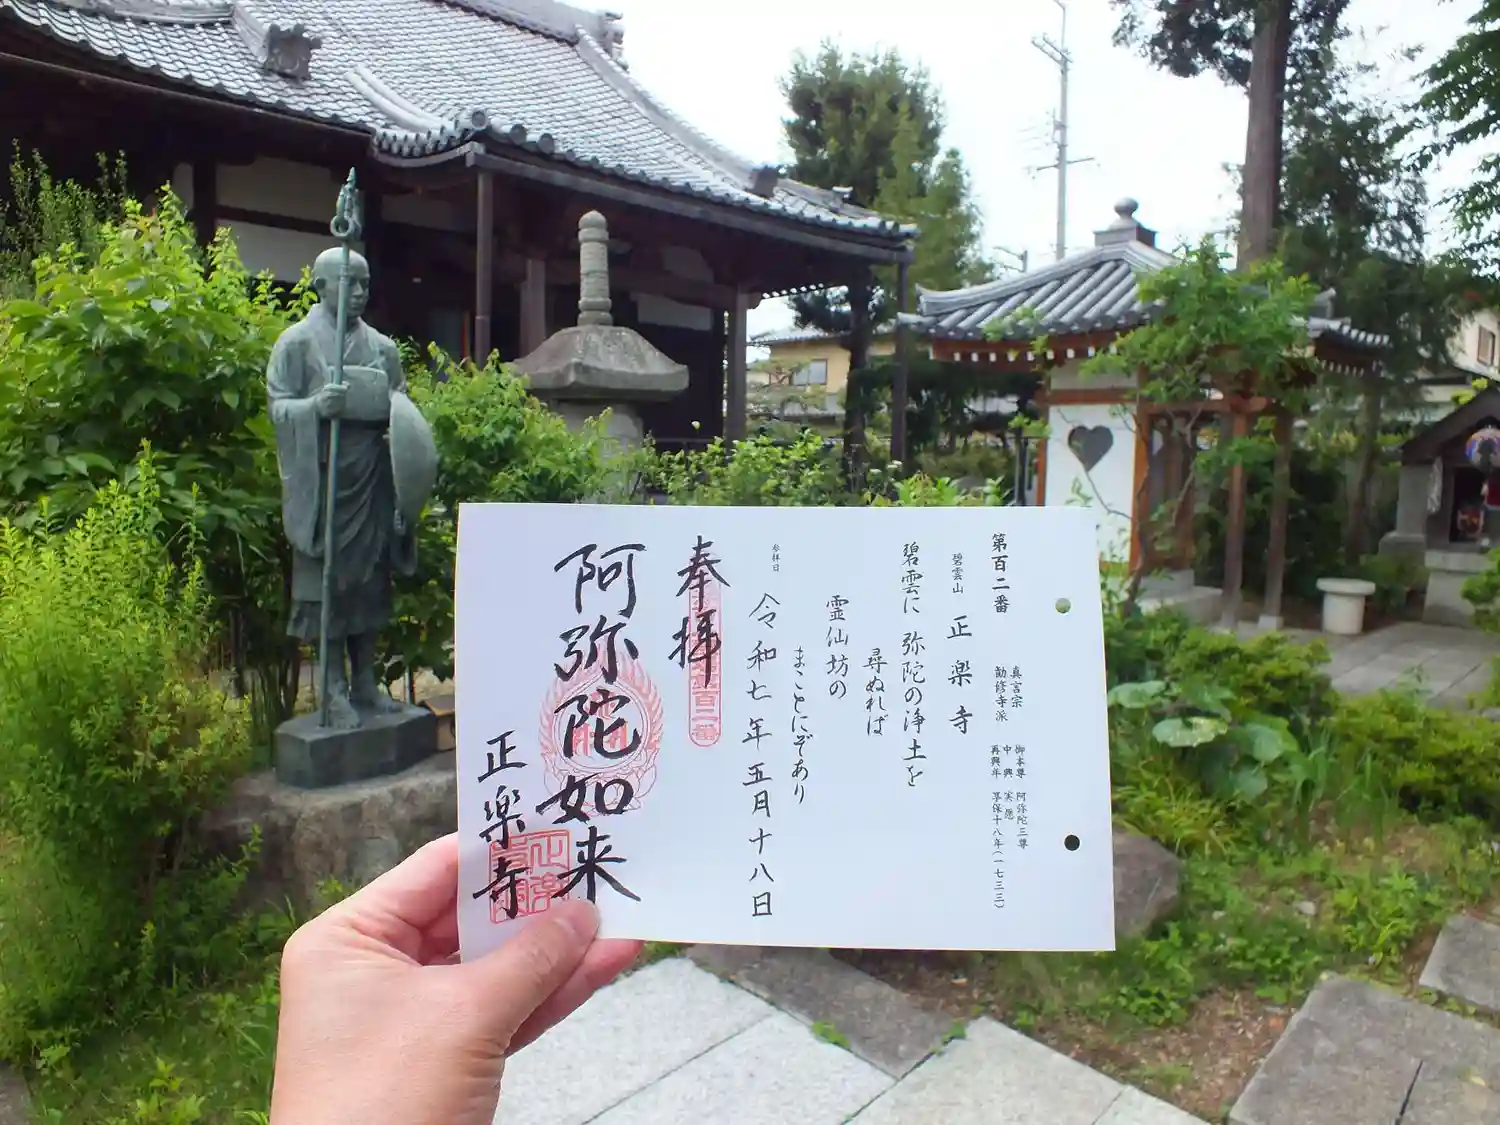 第百二番
真言宗
勧修寺派
御本尊 阿弥陀三尊
中興 実應
再興年 享保十八年(一七三三)
碧雲山 正楽寺
碧雲に 弥陀の浄土を
尋ぬれば
霊仙坊の
まことにぞあり
参拝日
令和七年五月十八日
奉拝
百二番
阿弥陀如来
正楽寺